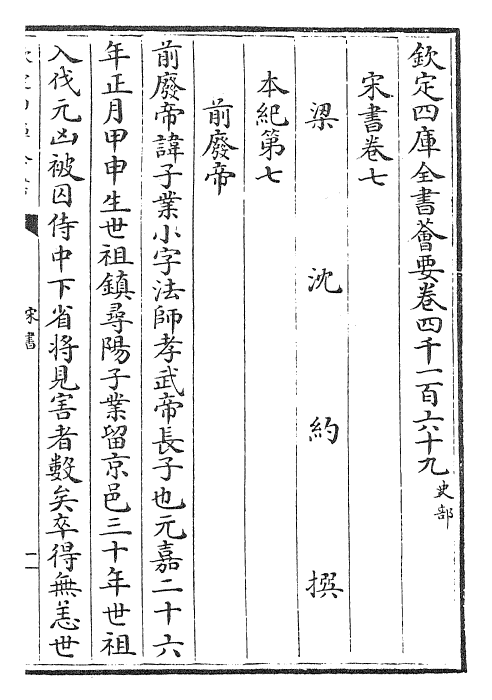 欽定四庫全書薈要卷四千一百六十九 史部
宋書卷七
梁 沈 約 撰
本紀第七
前廢帝
前廢帝諱子業小字法師孝武帝長子也元嘉二十六
年正月甲申生世祖鎮尋陽子業留京邑三十年世祖
入伐元凶被囚侍中下省將見害者數矣卒得無恙世
宋書